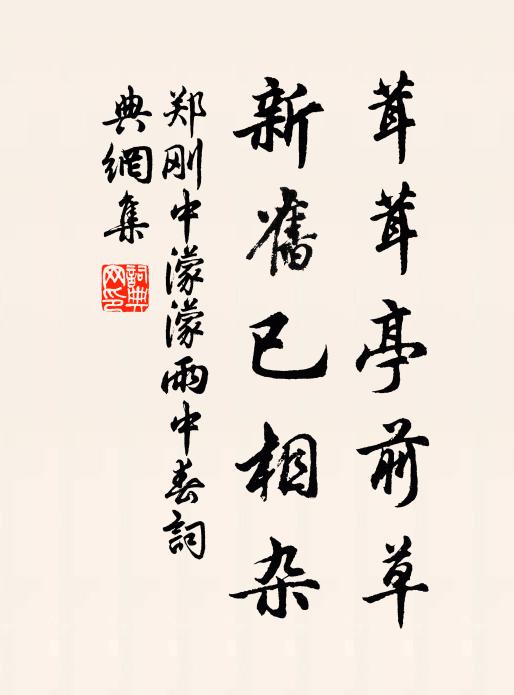 茸茸亭前草
新舊已相杂
郑刚中濛濛雨中春詞
典網集
詞典网印